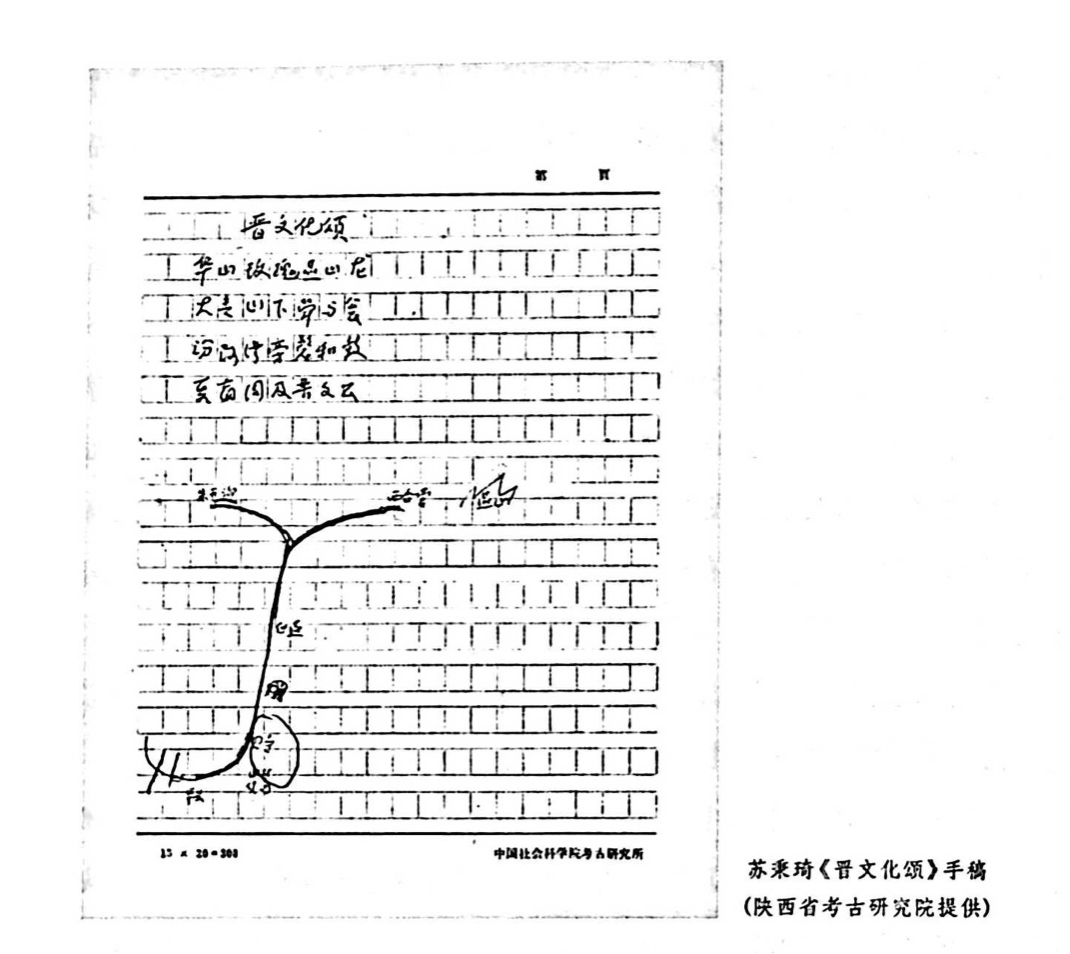 第 页
晋文化颂
华山玫瑰燕山龙
大青山下斝与瓮
汾河湾旁磬和鼓
夏商周及晋文公
西合营
15 × 20=300 中国社会科学院考古研究所
苏秉琦《晋文化颂》手稿
(陕西省考古研究院提供)